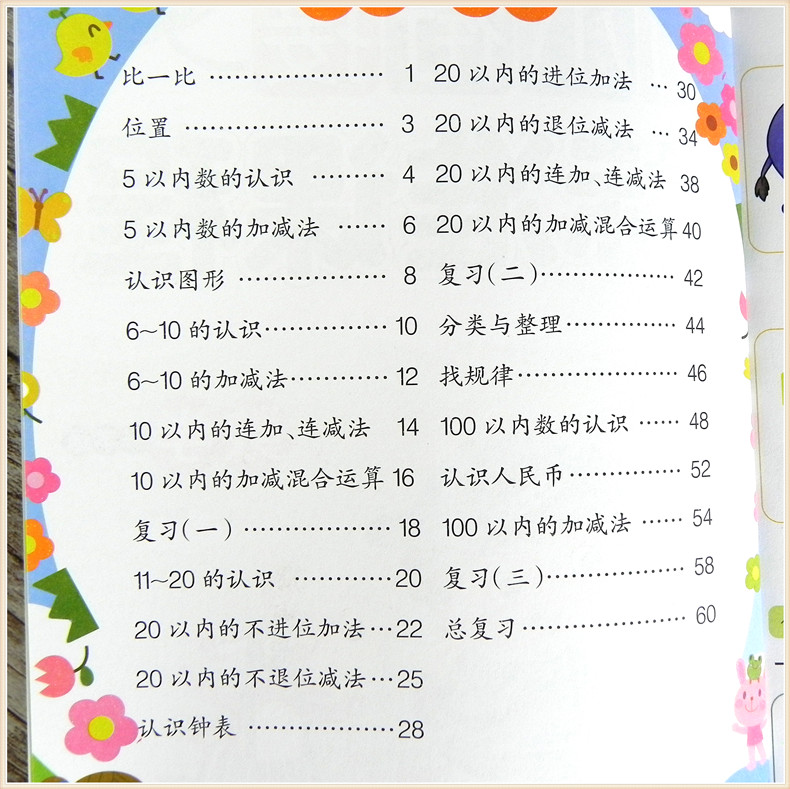 比一比 ………………… 1
位置 …………………… 3
5 以内数的认识 ……… 4
5 以内数的加减法 …… 6
认识图形 ……………… 8
6~10 的认识…………… 10
6~10 的加减法………… 12
10 以内的连加、连减法 14
10 以内的加减混合运算 16
复习(一) ……………… 18
11~20 的认识 ………… 20
20 以内的不进位加法…22
20 以内的不退位减法…25
认识钟表 ………………28
20 以内的进位加法 … 30
20 以内的退位减法 … 34
20 以内的连加、连减法 38
20 以内的加减混合运算 40
复习(二)…………… 42
分类与整理………… 44
找规律……………… 46
100 以内数的认识 …… 48
认识人民币………… 52
100 以内的加减法 …… 54
复习(三)…………… 58
总复习……………… 60